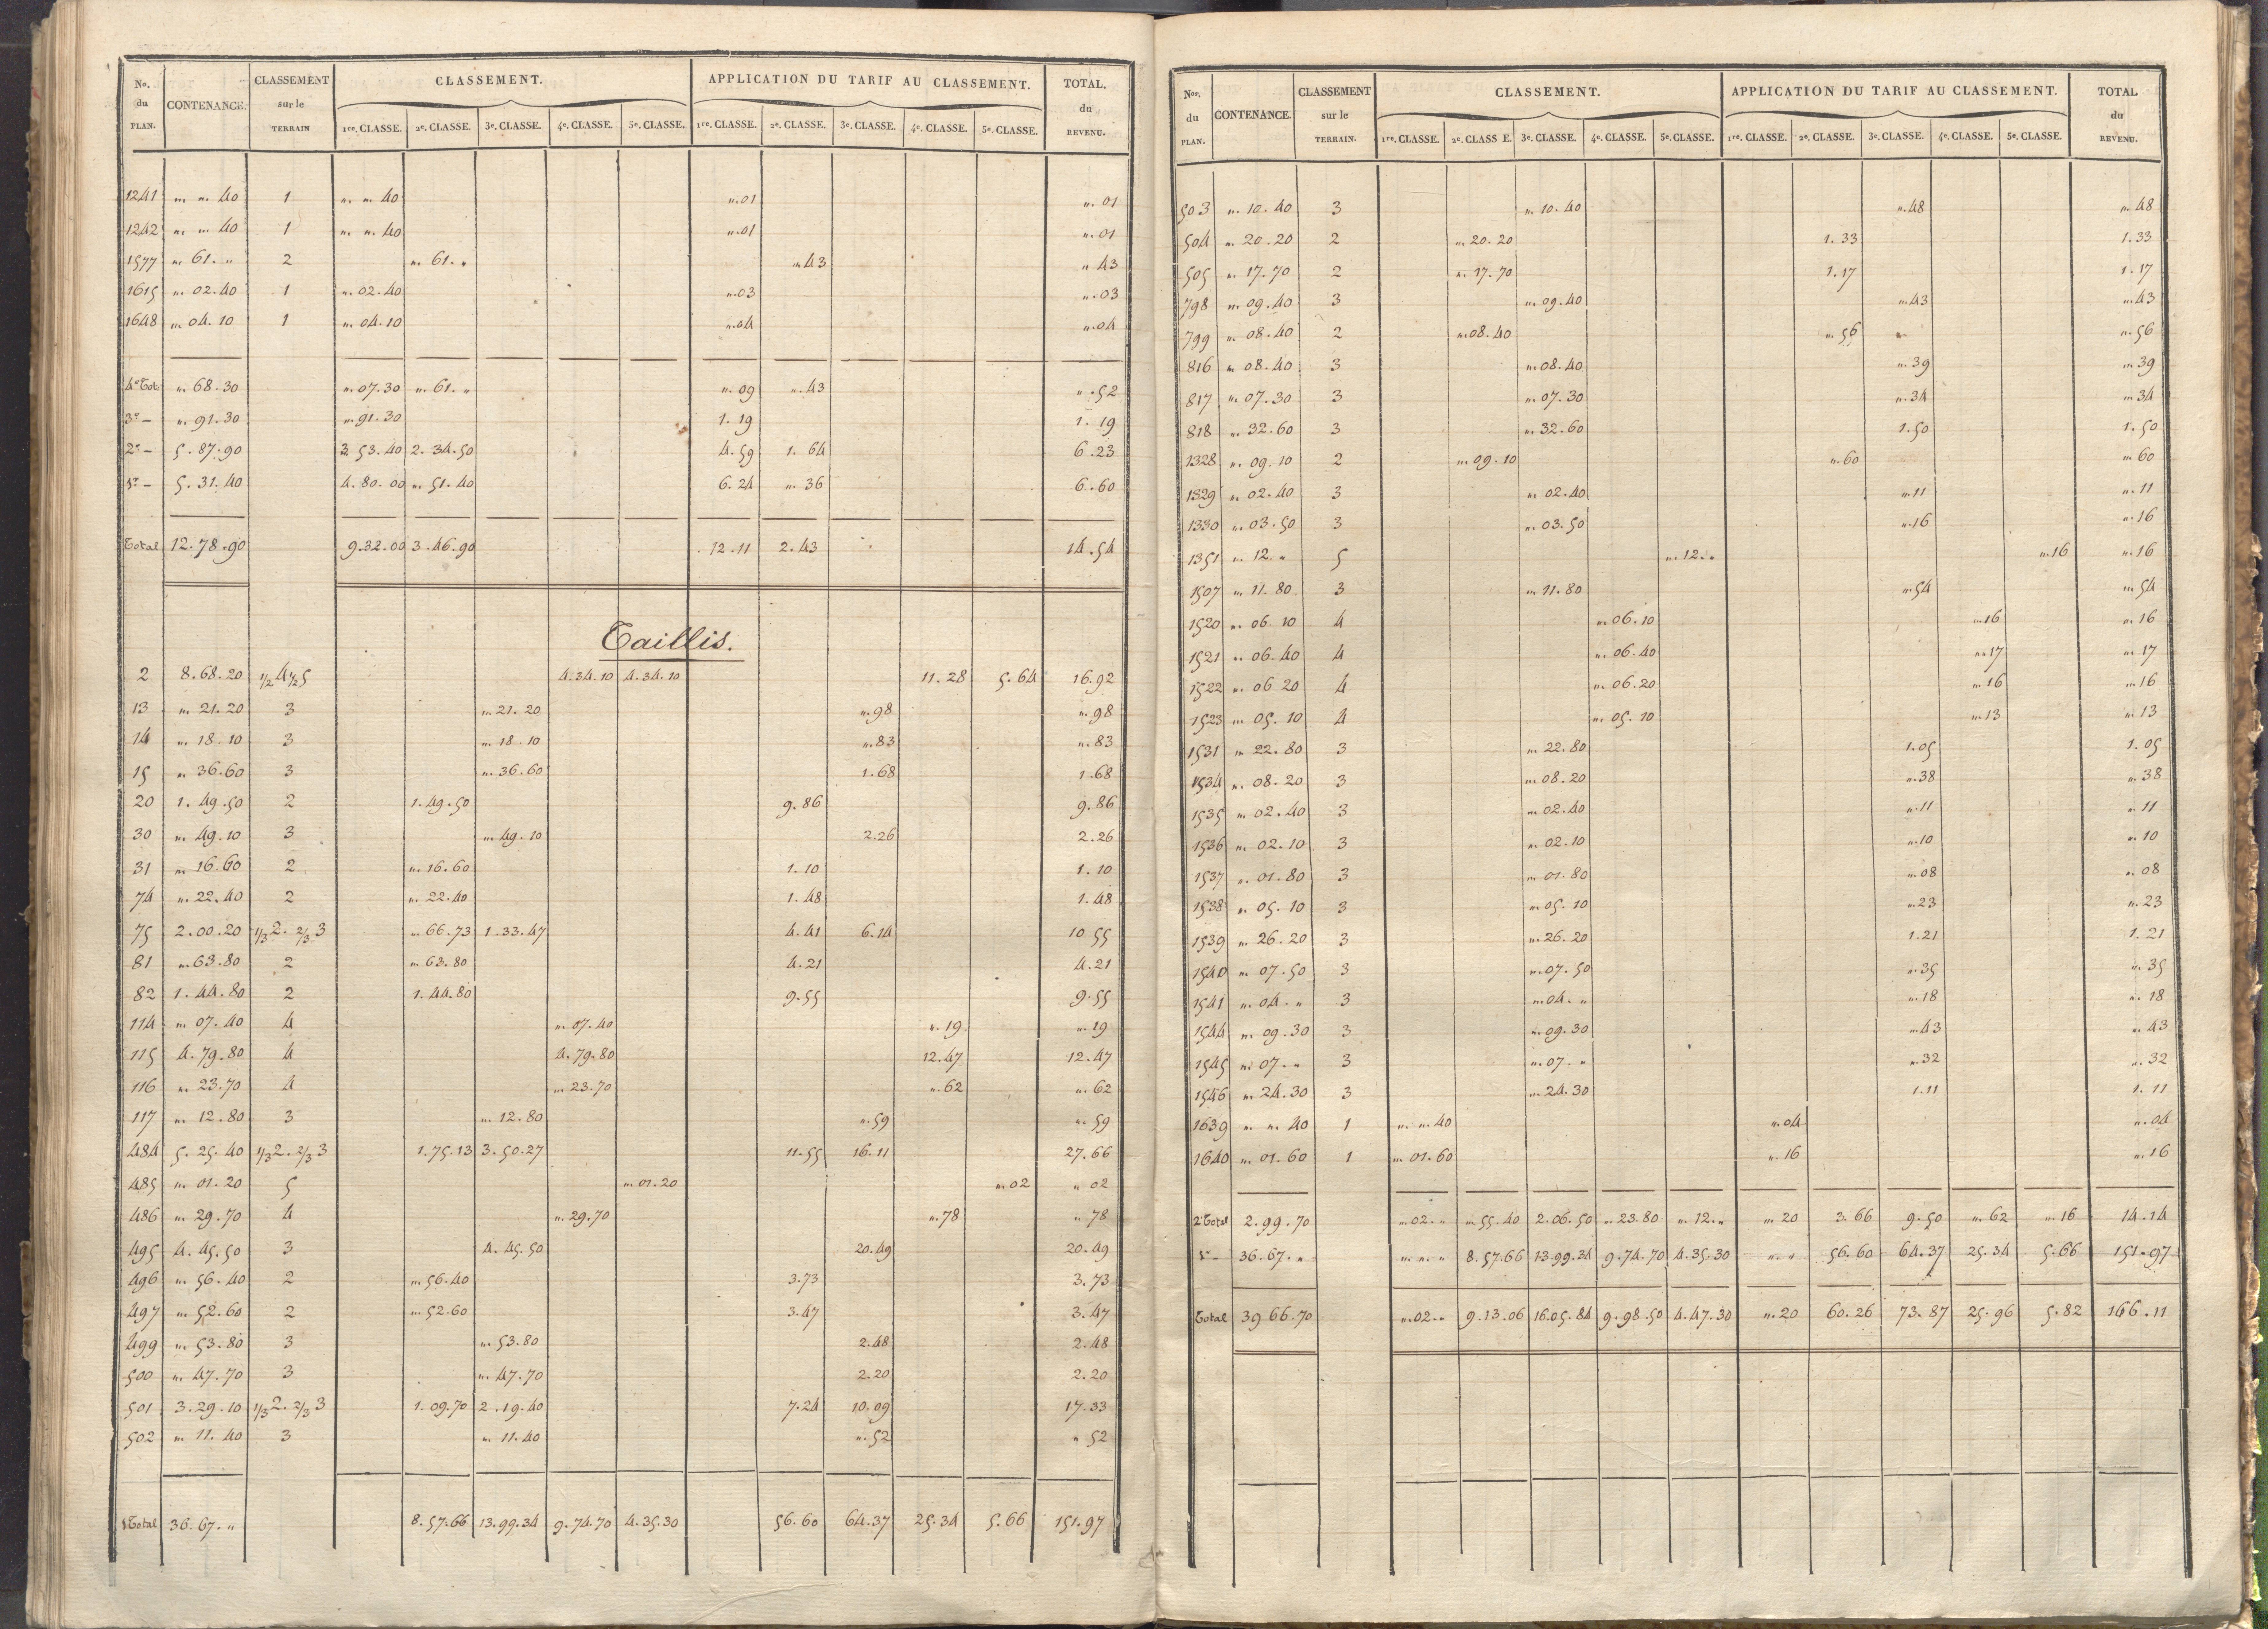 No. du PLAN. CONTENANCE. CLASSEMENT sur le TERRAIN CLASSEMENT. APPLICATION DU TARIF AU CLASSEMENT. TOTAL. du REVENU.
1re. CLASSE. 2e. CLASSE. 3e. CLASSE. 4e. CLASSE. 5e. CLASSE. 1re. CLASSE. 2e. CLASSE. 3e. CLASSE. 4e. CLASSE. 5e. CLASSE.
1241 " " 40 1 " " 40 ".01 ". 01
1242 " " 40 1 " " 40 ".01 ". 01
1577 " 61. " 2 " 61. " " 43 " 43
1615 " 02.40 1 " 02.40 ".03 ".03
1648 " 04.10 1 " 04.10 ".04 ".04
4e Tot. " 68.30 " 07.30 " 61. " ". 09 ". 43 ".52
3e - " 91.30 " 91.30 1.19 1.19
2e - 5.87.90 3 53.40 2.34.50 4.59 1.64 6.23
1r - 5.31.40 4.80.00 " 51.40 6.24 " 36 6.60
Total 12.78.90 9.32.00 3.46.90 12.11 2.43 14.54
Taillis.
2 8.68.20 1/2 4 1/2 5 4.34.10 4.34.10 11.28 5.64 16.92
13 " 21.20 3 " 21.20 ".98 ".98
14 " 18.10 3 " 18.10 ".83 ".83
15 " 36.60 3 " 36.60 1.68 1.68
20 1.49.50 2 1.49.50 9.86 9.86
30 " 49.10 3 " 49.10 2.26 2.26
31 " 16.60 2 " 16.60 1.10 1.10
74 " 22.40 2 " 22.40 1.48 1.48
75 2.00.20 1/3 2. 2/3 3 " 66.73 1.33.47 4.41 6.14 10 55
81 " 63.80 2 " 63.80 4.21 4.21
82 1.44.80 2 1.44.80 9.55 9.55
114 " 07.40 4 " 07.40 ".19 ".19
115 4.79.80 4 4.79.80 12.47 12.47
116 " 23.70 4 " 23.70 ".62 ".62
117 " 12.80 3 " 12.80 ".59 ".59
484 5.25.40 1/3 2. 2/3 3 1.75.13 3.50.27 11.55 16.11 27.66
485 " 01.20 5 " 01.20 ".02 " 02
486 " 29.70 4 " 29.70 ".78 " 78
495 4.45.50 3 4.45.50 20.49 20.49
496 " 56.40 2 " 56.40 3.73 3.73
497 " 52.60 2 " 52.60 3.47 3.47
499 " 53.80 3 " 53.80 2.48 2.48
500 " 47.70 3 " 47.70 2.20 2.20
501 3.29.10 1/3 2. 2/3 3 1.09.70 2.19.40 7.24 10.09 17.33
502 " 11.40 3 " 11.40 ".52 " 52
1 Total 36.67. " 8.57.66 13.99.34 9.74.70 4.35.30 56.60 64.37 25.34 5.66 151.97
Nos. du PLAN. CONTENANCE. CLASSEMENT sur le TERRAIN. CLASSEMENT. APPLICATION DU TARIF AU CLASSEMENT. TOTAL du REVENU.
1re. CLASSE. 2e. CLASS E. 3e. CLASSE. 4e. CLASSE. 5e. CLASSE. 1re. CLASSE. 2e. CLASSE. 3e. CLASSE. 4e. CLASSE. 5e. CLASSE.
503 " 10.40 3 " 10.40 ".48 ".48
504 " 20.20 2 " 20.20 1.33 1.33
505 " 17.70 2 " 17.70 1.17 1.17
798 " 09.40 3 " 09.40 ".43 ".43
799 " 08.40 2 " 08.40 ".56 " ".56
816 " 08.40 3 " 08.40 ".39 ".39
817 " 07.30 3 " 07.30 ".34 ".34
818 " 32.60 3 " 32.60 1.50 1.50
1328 " 09.10 2 " 09.10 ".60 ".60
1329 " 02.40 3 " 02.40 ".11 ".11
1330 " 03.50 3 " 03.50 ".16 ".16
1351 " 12. " 5 " 12. " ".16 ".16
1507 " 11.80 3 " 11.80 ".54 ".54
1520 " 06.10 4 " 06.10 ".16 ".16
1521 " 06.40 4 " 06.40 ".17 ".17
1522 " 06 20 4 " 06.20 ".16 ".16
1523 " 05.10 4 " 05.10 ".13 ".13
1531 " 22.80 3 " 22.80 1.05 1.05
1534 " 08.20 3 " 08.20 ".38 ".38
1535 " 02.40 3 " 02.40 ".11 ".11
1536 " 02.10 3 " 02.10 ".10 ".10
1537 " 01.80 3 " 01.80 ".08 ".08
1538 " 05.10 3 " 05.10 ".23 ".23
1539 " 26.20 3 " 26.20 1.21 1.21
1540 " 07.50 3 " 07.50 ".35 ".35
1541 " 04. " 3 " 04. " ".18 ".18
1544 " 09.30 3 " 09.30 ".43 ".43
1545 " 07. " 3 " 07. " ".32 ".32
1546 " 24.30 3 " 24.30 1.11 1.11
1639 " " 40 1 " " 40 ".04 ".04
1640 " 01.60 1 " 01.60 ".16 ".16
2e Total 2.99.70 " 02. " " 55.40 2.06.50 " 23.80 " 12. " " 20 3.66 9.50 " 62 ".16 14.14
1r - 36.67. " " " " 8.57.66 13.99.34 9.74.70 4.35.30 " " 56.60 64.37 25.34 5.66 151.97
Total 39 66.70 ".02. " 9.13.06 16.05.84 9.98.50 4.47.30 ".20 60.26 73.87 25.96 5.82 166.11